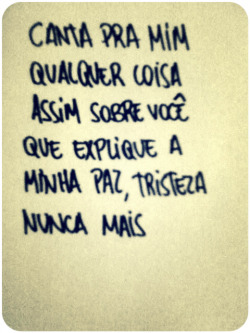 CANTA PRA MIM
QUALQUER COISA
ASSIM SOBRE VOCÊ
QUE EXPLIQUE A
MINHA PAZ, TRISTEZA
NUNCA MAIS